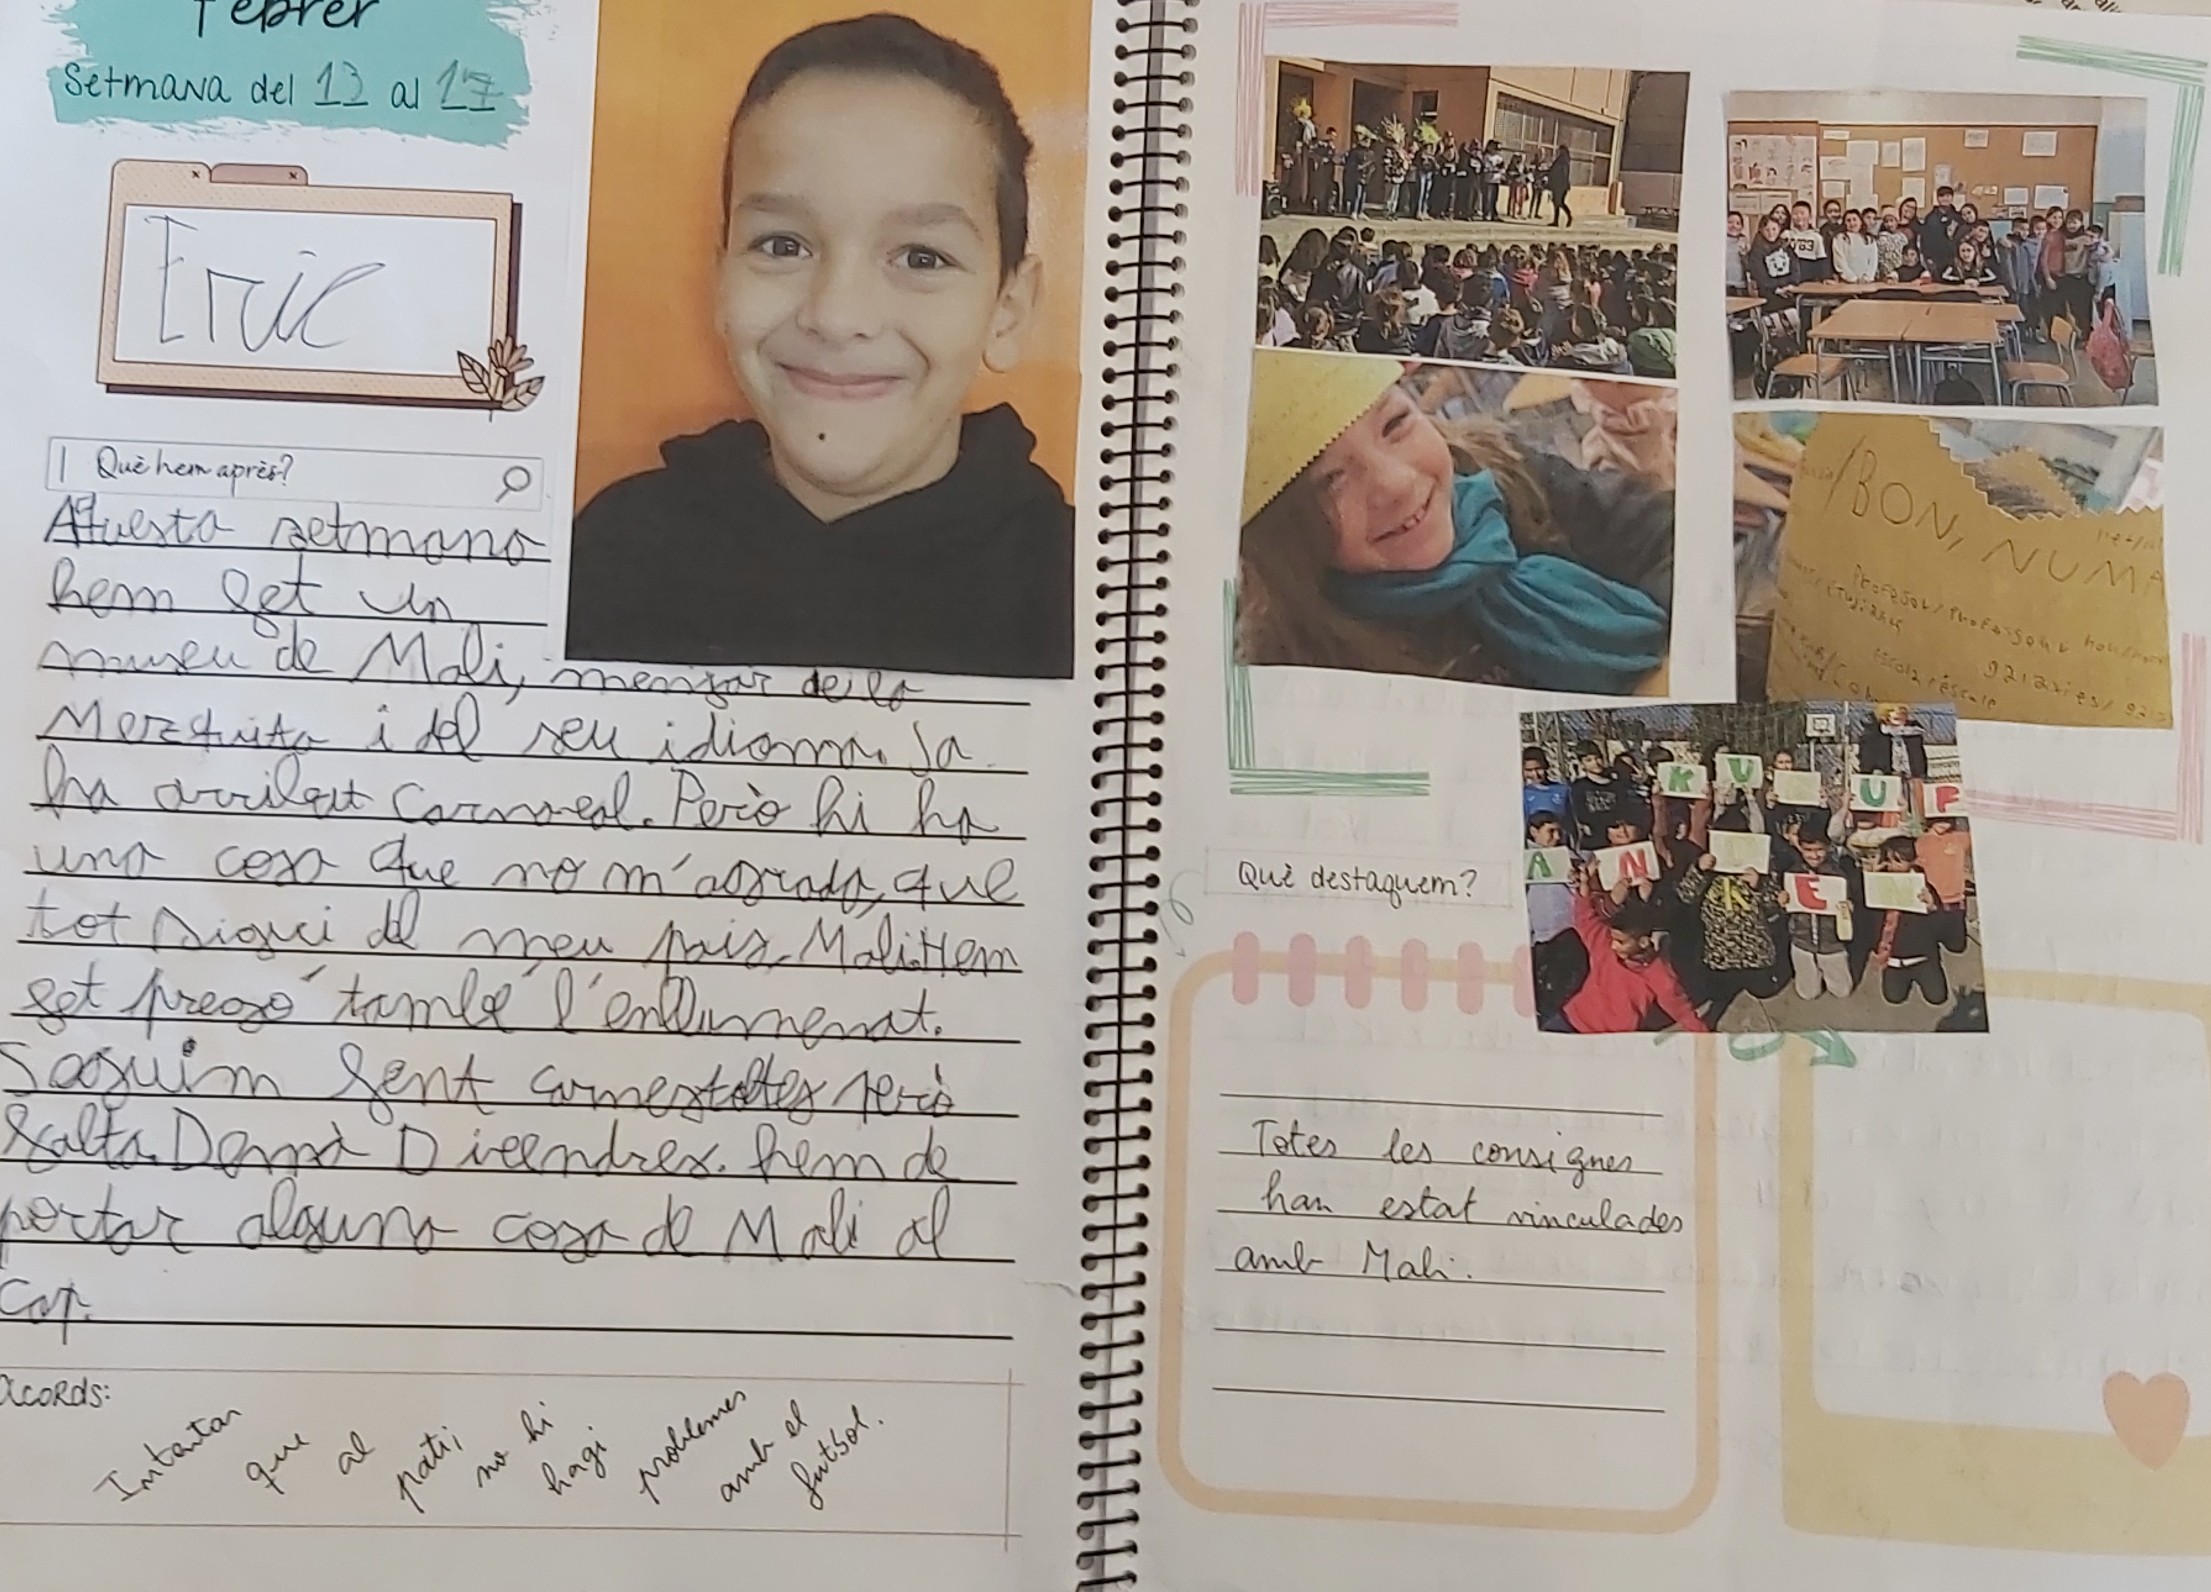 Febrer
Setmana del 13 al 17
Eric
Què hem après?
Aquesta setmana
hem fet un
museu de Mali, menjar de la
Mezquita i del seu idioma. Ja
ha arribat Carnaval. Però hi ha
una cosa que no m'agrada, que
tot sigui del meu pais, Mali. Hem
fet pregó també l'enllumenat.
Saguim fent
però
falta. Demà Divendres. hem de
portar alguna cosa de Mali al
Cap.
Acords:
Intentar que al pati, no hi hagi problemes amb el futbol.
/BON, NUMA
PROFESOR/
escola/école
K U U F
A N K E N
Què destaquem?
Totes les consignes
han estat vinculades
amb Mali.